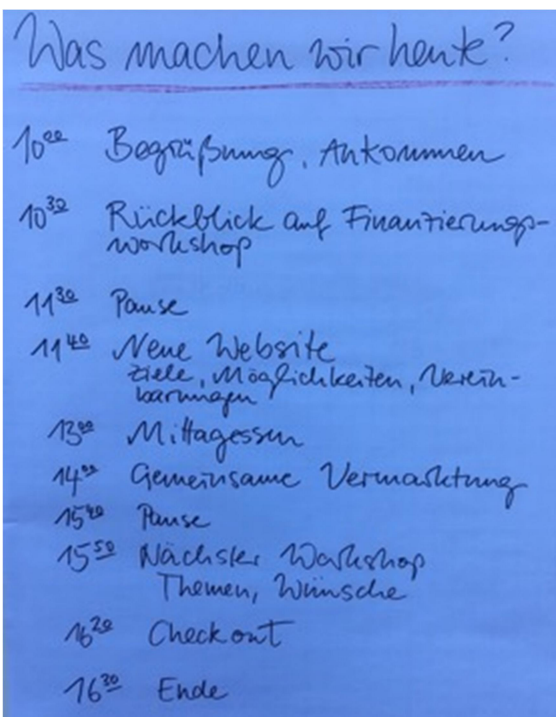 Was machen wir heute?
10⁰⁰ Begrüßung, Ankommen
10³⁰ Rückblick auf Finanzierungs-
workshop
11³⁰ Pause
11⁴⁰ Neue Website
Ziele, Möglichkeiten, Verein-
barungen
13⁰⁰ Mittagessen
14⁰⁰ Gemeinsame Vermarktung
15⁴⁰ Pause
15⁵⁰ Nächster Workshop
Themen, Wünsche
16²⁰ Check out
16³⁰ Ende